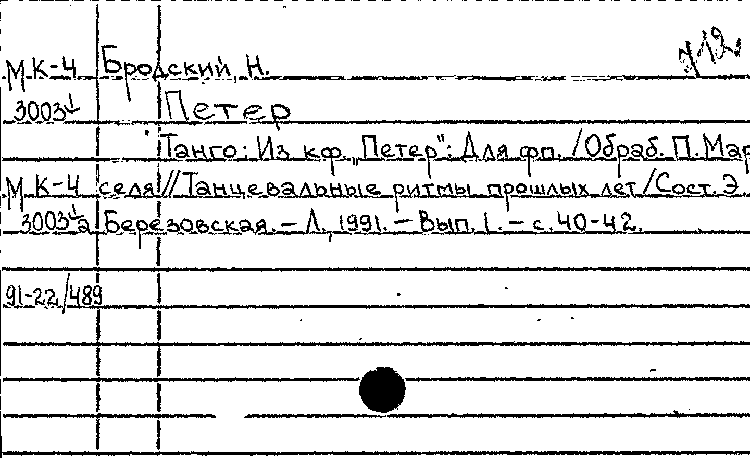 М К-4 Бродский, Н.
3003↓ Петер
Танго: Из кф. "Петер": Для фп. /Обраб. П. Мар
М К-4 селя // Танцевальные ритмы прошлых лет / Сост. Э.
3003↓а Березовская. – Л., 1991. – Вып. 1. – с. 40-42.
91-22/489